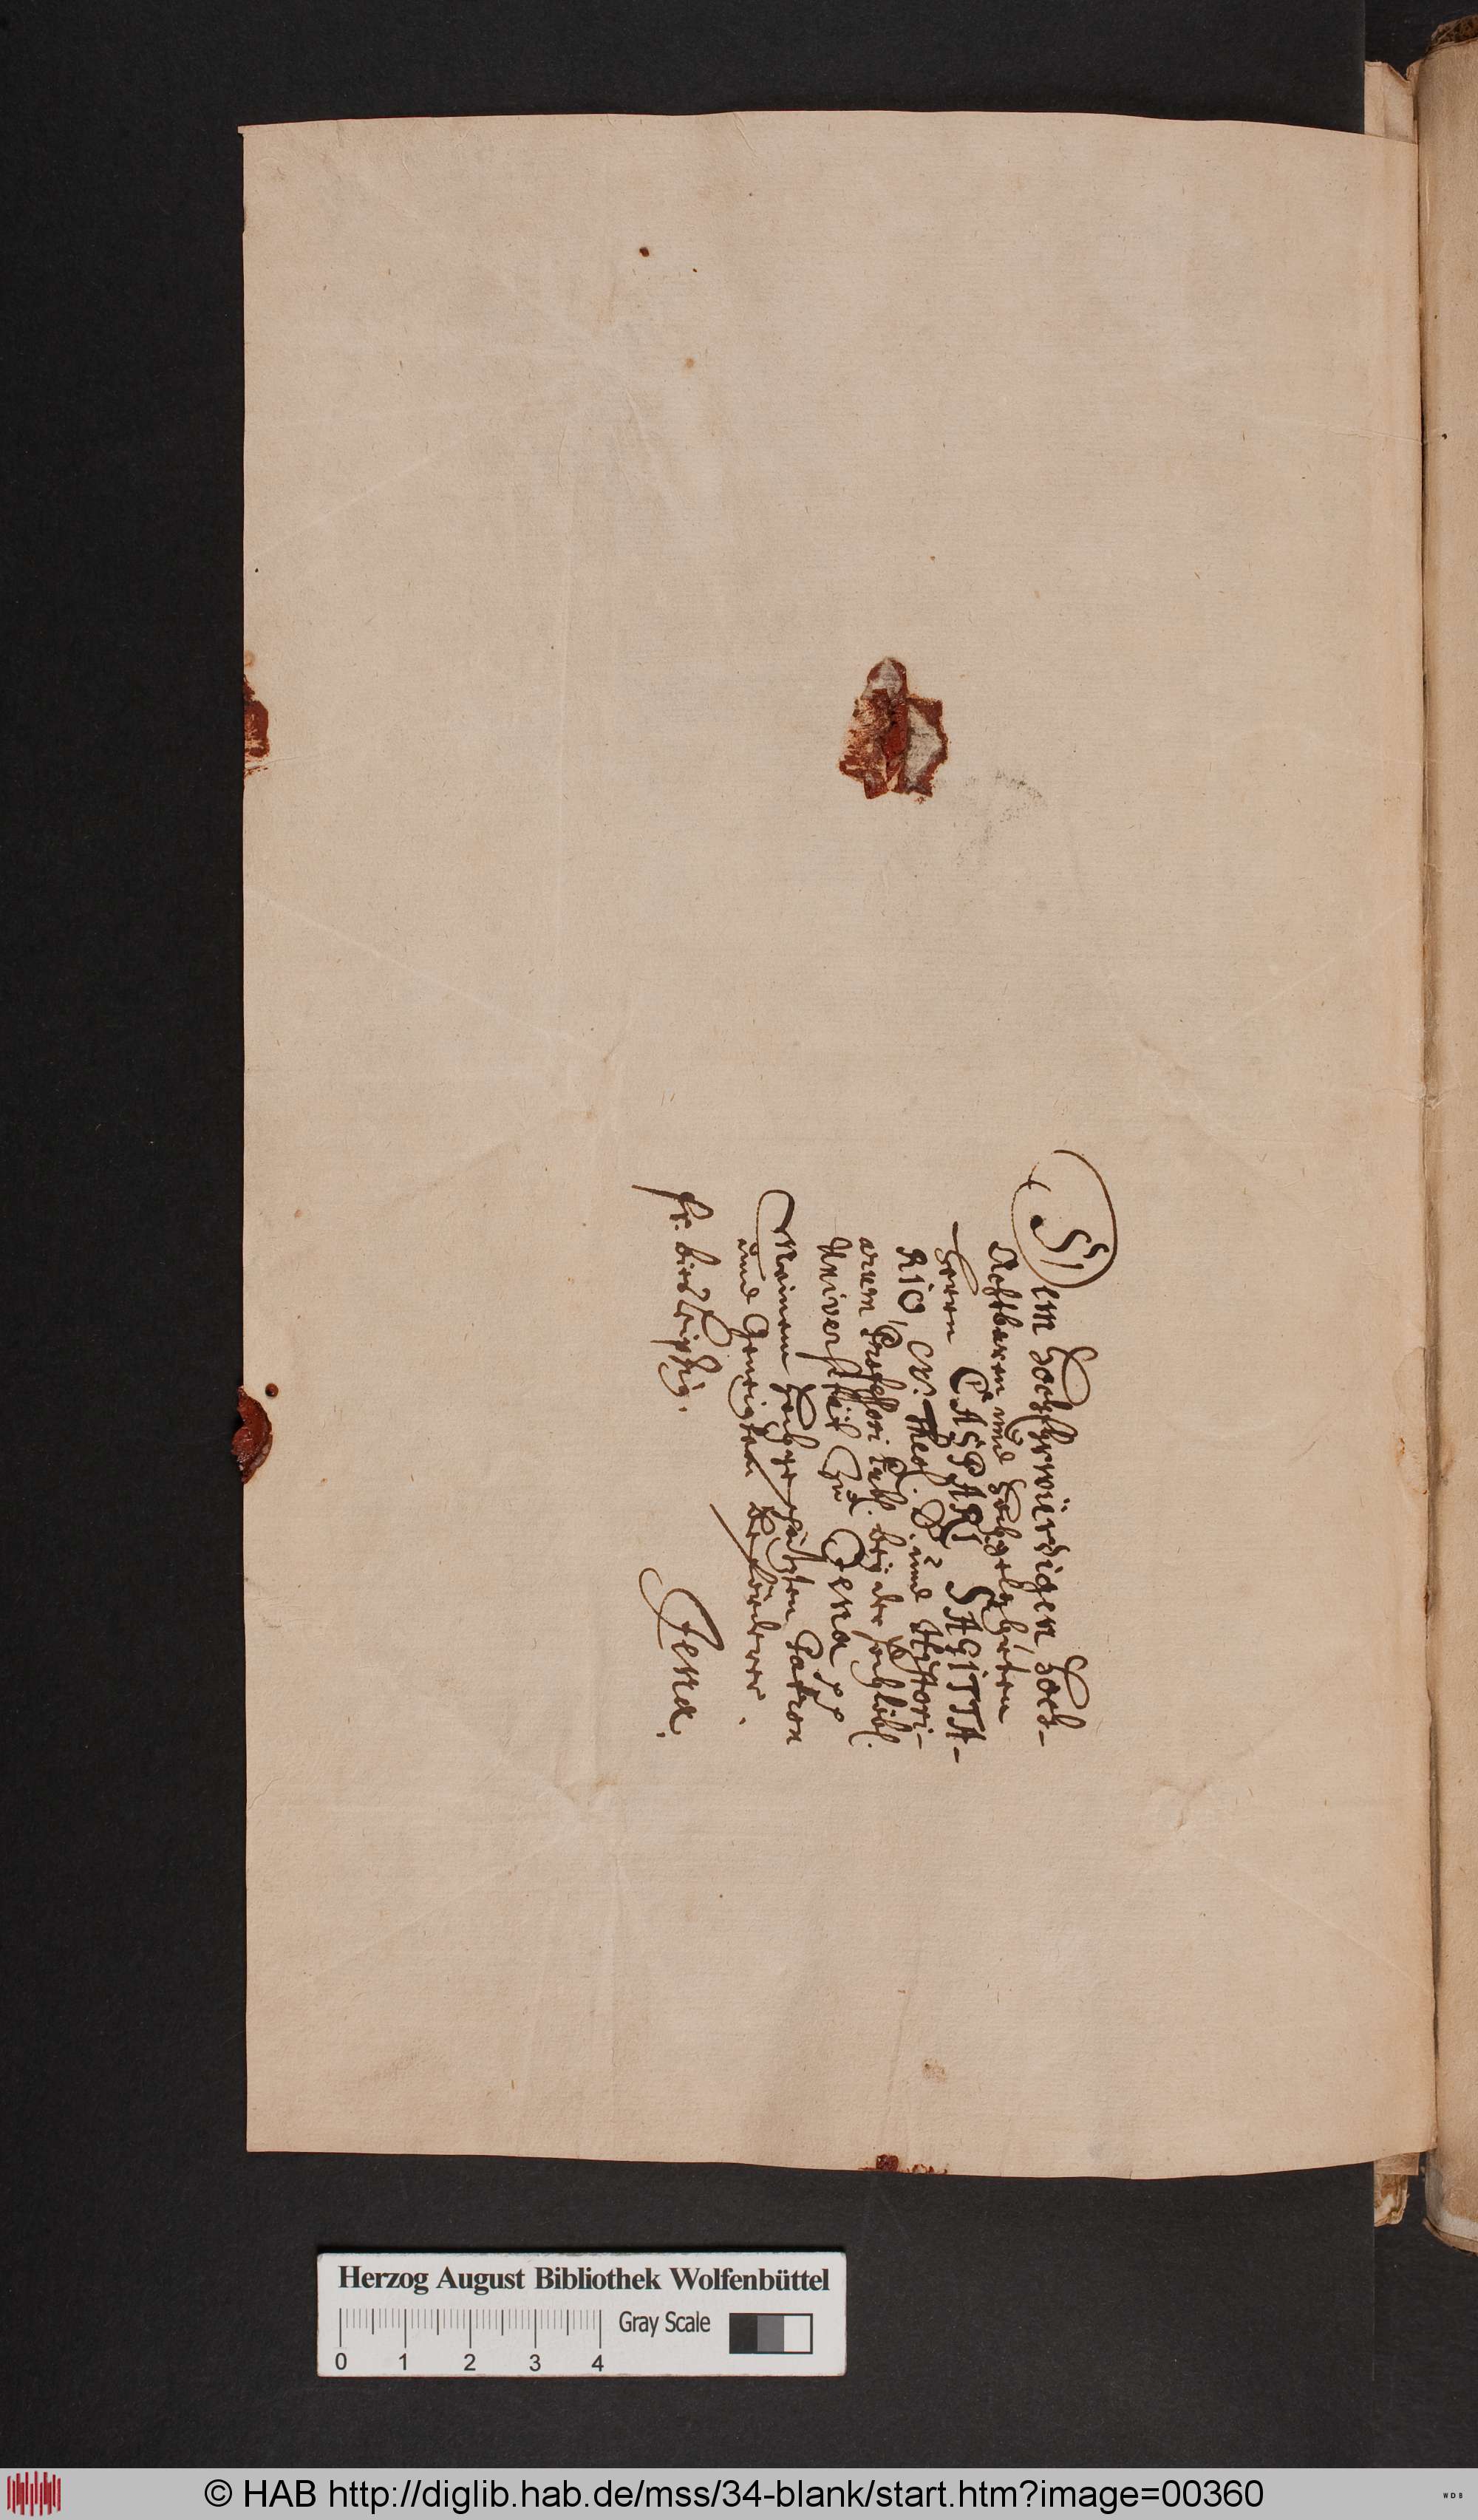 Dem HochEhrwürdigen Hoch-
Achtbaren und Hochgelahrten
Herrn CASPARI SAGITTA-
RIO, Theol. D. und Histori-
arum Professori Publ. bey der hochlöbl.
Universität zu Jena
Meinem Hochgeschätzten Patron
und Geneigten Beförderer.
fr. bis Leipzig.
Jena.
Herzog August Bibliothek Wolfenbüttel
Gray Scale
0 1 2 3 4
© HAB http://diglib.hab.de/mss/34-blank/start.htm?image=00360
WDB